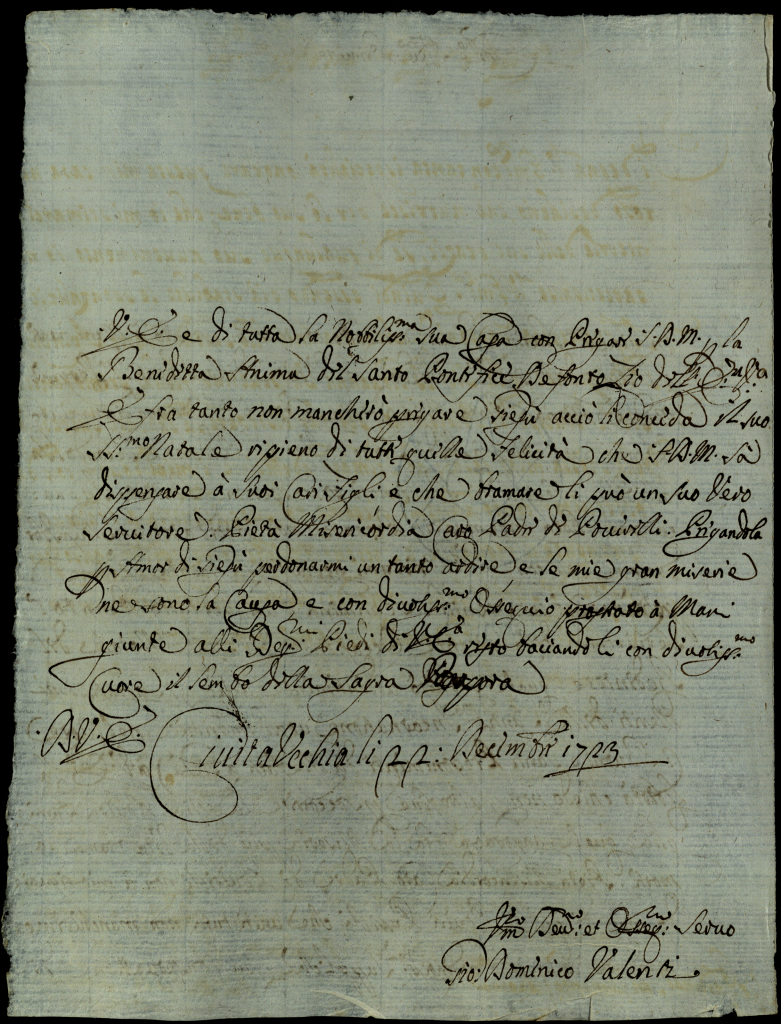 V. E. e di tutta la Nobbiliss.ma sua Casa con Prigar S. D. M. p la
Beniditta Anima del Santo Pontifice Defonto Zio dell' E. V.ra
E fra tanto non mancherò prigare Giesù acciò li conceda il suo
SS.mo Natale ripieno di tutti quille Felicità che S. D. M. sà
dispensare à suoi Cari figli e che bramare li può un suo Vero
Servitore. Pietà Misericordia Caro Padre di Poverelli. Prigandola
p Amor di Giesù perdonarmi un tanto ardire e le mie gran miserie
ne sono la Causa e con divotiss.mo Ossequio prostato à Mani
giunte alli Piedi di V. E. resto baciandoli con divotiss.mo
Cuore il lembo della Sagra Porpora
D. V. E.
Civita Vechia li 22: Decembre 1723
Um.mo Dev.mo et Osseq.mo Servo
Gio: Dominico Valenti